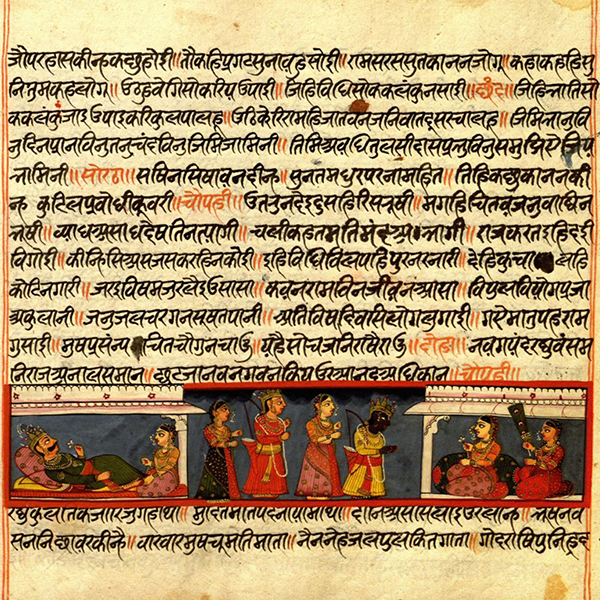 जौ परहास कीन्ह कछु होई॥ तौ कहि प्रगट सुनावहु सोई॥ राम सरस सुत कानन जोगू॥ कहा कहहि सु
नि तुम कह लोगू॥ उठहु बेगि सोइ करिअ उपाई॥ जिहि बिधि सोक कलंक नसाई॥ छंद॥ जिहि भाति सो
क कलंकु जाइ उपाइ करि कुल पालहू॥ हठि फेरि रामहि जात बन जनि बात दूसरि चालहू॥ जिमि भानु बि
नु दिन प्रान बिनु तनु चंद बिनु जिमि जामिनी॥ तिमि अवध तुलसीदास प्रभु बिनु समुझि जिय
भामिनी॥ सोरठा॥ सषिन सिषावन दीन्ह॥ सुनत मधुर परनाम हित॥ तिहि कछु कान न की
न्ह कुटिल प्रबोधी कूबरी॥ चौपही॥ उतरु न देइ दुसह रिस रूषी॥ मृगहि चितव जनु बाघिन
भूषी॥ ब्याधि असाधि देषि तिन त्यागी॥ चली कहत मतिमंद अभागी॥ राज करत इहि दई
बिगोई॥ कीन्हिसि अस जस करहि न कोई॥ इहि बिधि बिलपहि पुर नर नारी॥ देहि कुचा लहि
कोटिन गारी॥ जरइ बिषम जुर लेइ उसासा॥ कवन राम बिन जीवन आसा॥ बिपुल बियोग प्रजा
अकुलानी॥ जनु जलचर गन सूषत पानी॥ अति बिषाद बसि लोग लुगाई॥ गए मातु पह राम
गुसाई॥ मुष प्रसन्न चित चौगुन चाउ॥ यहै सोच जनि राषै राउ॥ दोहा॥ नव गयंद रघुबंस म
नि राज अलान समान॥ छूट जान बन गवन किय उर आनद अधिकान॥ चौपही॥
रघुकुल तिलक जोरि जुग हाथा॥ मुदित मातु पद नायौ माथा॥ दीन असीस लाइ उर लीन्हे॥ भूषन ब
सन निछावर कीन्है॥ बार बार मुष चूमति माता॥ नैन नेह जल पुलकित गाता॥ गोद राषि पुनि हृद